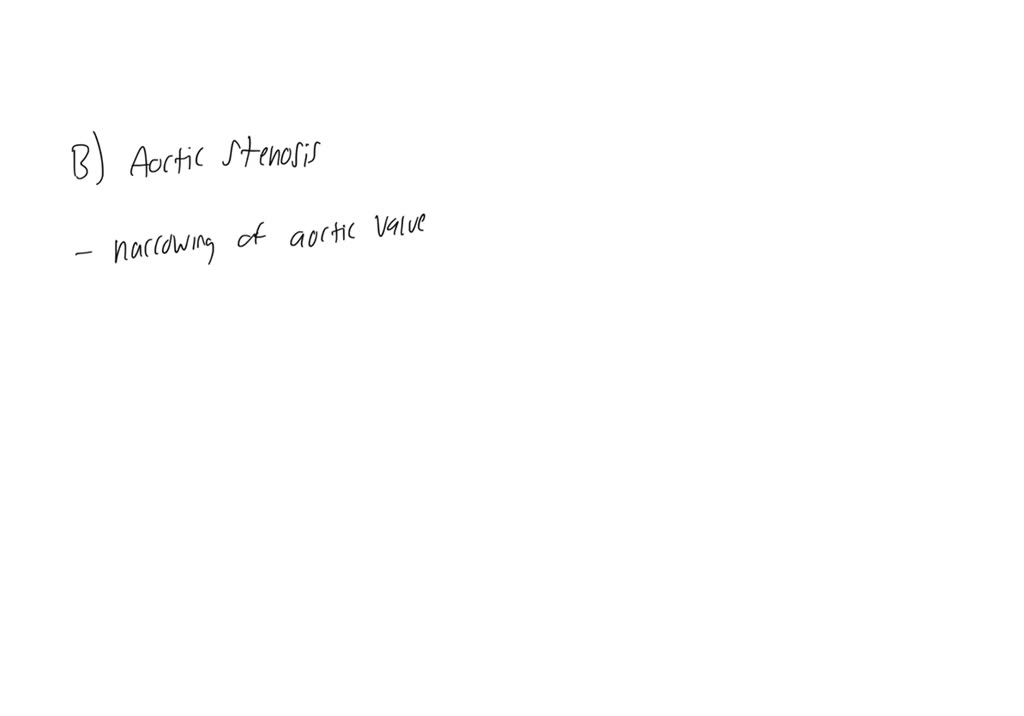 B) Aortic stenosis
- narrowing of aortic valve